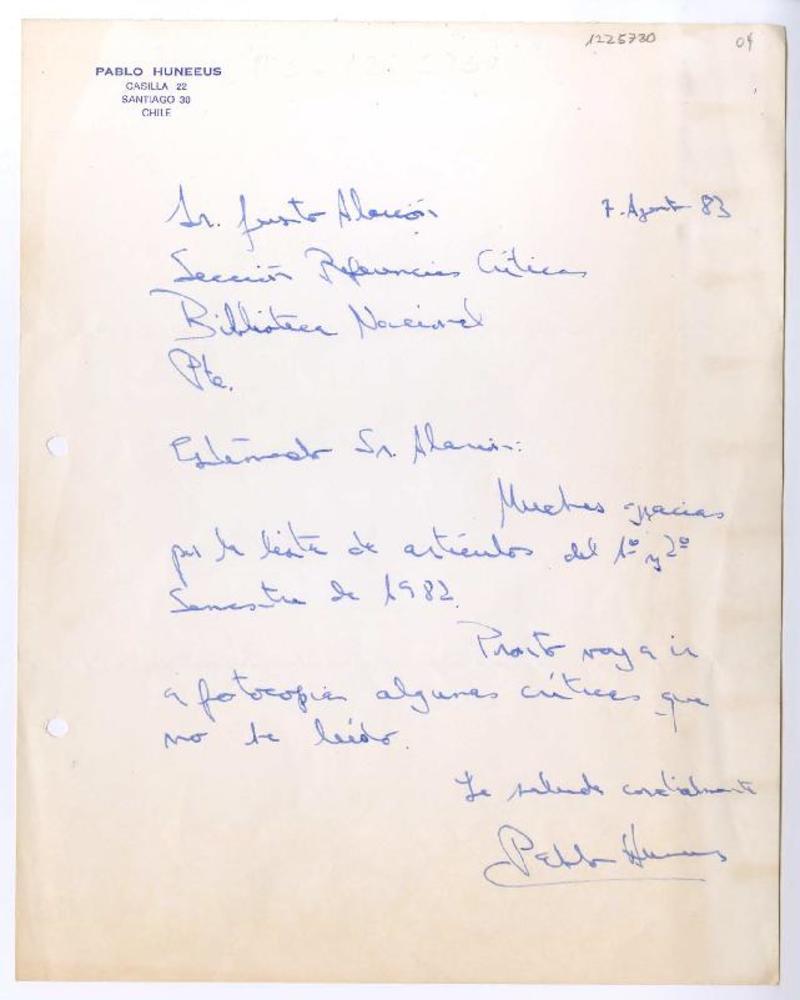 1225730
04
PABLO HUNEEUS
CASILLA 22
SANTIAGO 30
CHILE
Sr. Justo Alarcón
7. Agosto 83
Sección Referencias Críticas
Biblioteca Nacional
Pte.
Estimado Sr. Alarcón:
Muchas gracias
por la lista de artículos del 1º y 2º
Semestre de 1982.
Pronto voy a ir
a fotocopiar algunas críticas que
no he leído.
Le saluda cordialmente
Pablo Huneeus